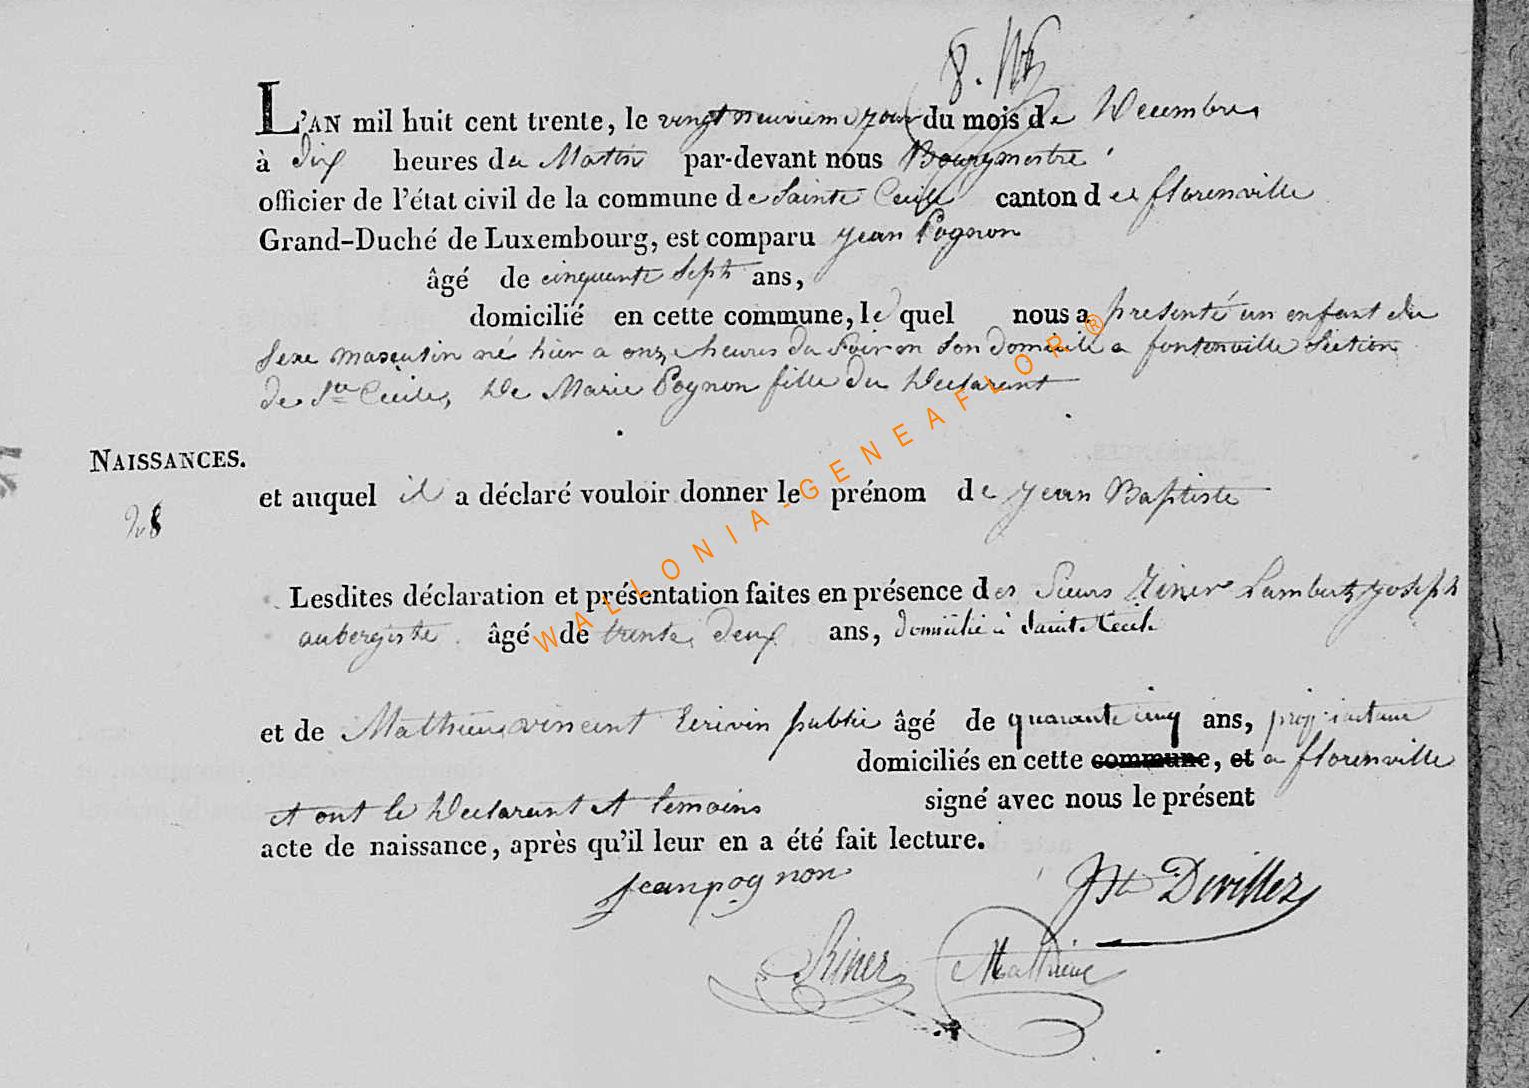 8.
L'AN mil huit cent trente, le vingt neuvieme jour du mois de Decembre
à dix heures du Matin par-devant nous Bourgmestre
officier de l'état civil de la commune de Sainte Cecile canton de florenville
Grand-Duché de Luxembourg, est comparu jean Pognon
âgé de cinquante Sept ans,
domicilié en cette commune, le quel nous a presenté un enfant du
Sexe masculin né hier a onze heures du Soir en Son domicile a fontenville Section
de Ste Cecile, de Marie Pognon fille du declarent
NAISSANCES.
et auquel il a déclaré vouloir donner le prénom de jean Baptiste
Lesdites déclaration et présentation faites en présence des Sieurs Lambert joseph
aubergiste âgé de trente deux ans, domicilié à Sainte Cecile
et de Mathieu vincent Ecrivin public âgé de quarante cinq ans,
domiciliés en cette commune, et a florenville
et ont le declarent et temoins signé avec nous le présent
acte de naissance, après qu'il leur en a été fait lecture.
jean pognon
Devillez
Mathieu
WALLONIA-GENEAFLOR®